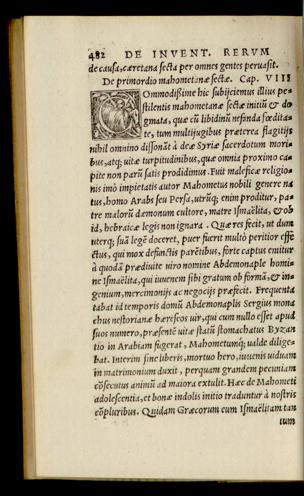 482 DE INVENT. RERVM
de causa, cæretana secta per omnes gentes peruasit.
De primordio mahometanæ sectæ. Cap. VIII
COmmodißime hic subijciemus illius pe=
stilentis mahometanæ sectæ initũ & do
gmata, quæ cũ libidinũ nefanda fœdita=
te, tum multijugibus præterea flagitijs
nihil omnino dissonãt à deæ Syriæ sacerdotum mori=
bus, atq; uitæ turpitudinibus, quæ omnia proximo ca=
pite non parũ satis prodidimus. Fuit maleficæ religio=
nis imò impietatis autor Mahometus nobili genere na
tus, homo Arabs seu Persa, utrũq; enim proditur, pa=
tre malorũ dæmonum cultore, matre Ismaëlita, & ob
id, hebraicæ legis non ignara. Quæ res fecit, ut dum
uterq; suã legẽ doceret, puer fuerit multò peritior effe
ctus, qui mox defunctis parẽtibus, forte captus emitur
à quodã prædiuite uiro nomine Abdemonaple homi=
ne Ismaëlita, qui iuuenem sibi gratum ob formã, & in=
genium, mercimonijs ac negocijs præfecit. Frequentа
tabat id temporis domũ Abdemonaplis Sergius mona
chus nestorianæ hæreseos uir, qui cum nullo esset apud
suos numero, præsentẽ uitæ statũ stomachatus Byzan
tio in Arabiam fugerat, Mahometumq; ualde dilige=
bat. Interim sine liberis, mortuo hero, iuuenis uiduam
in matrimonium duxit, perquam grandem pecuniam
cõsecutus animũ ad maiora extulit. Hæc de Mahometi
adolescentia, et bonæ indolis initio traduntur à nostris
cõpluribus. Quidam Græcorum cum Ismaëlitam tan
tum